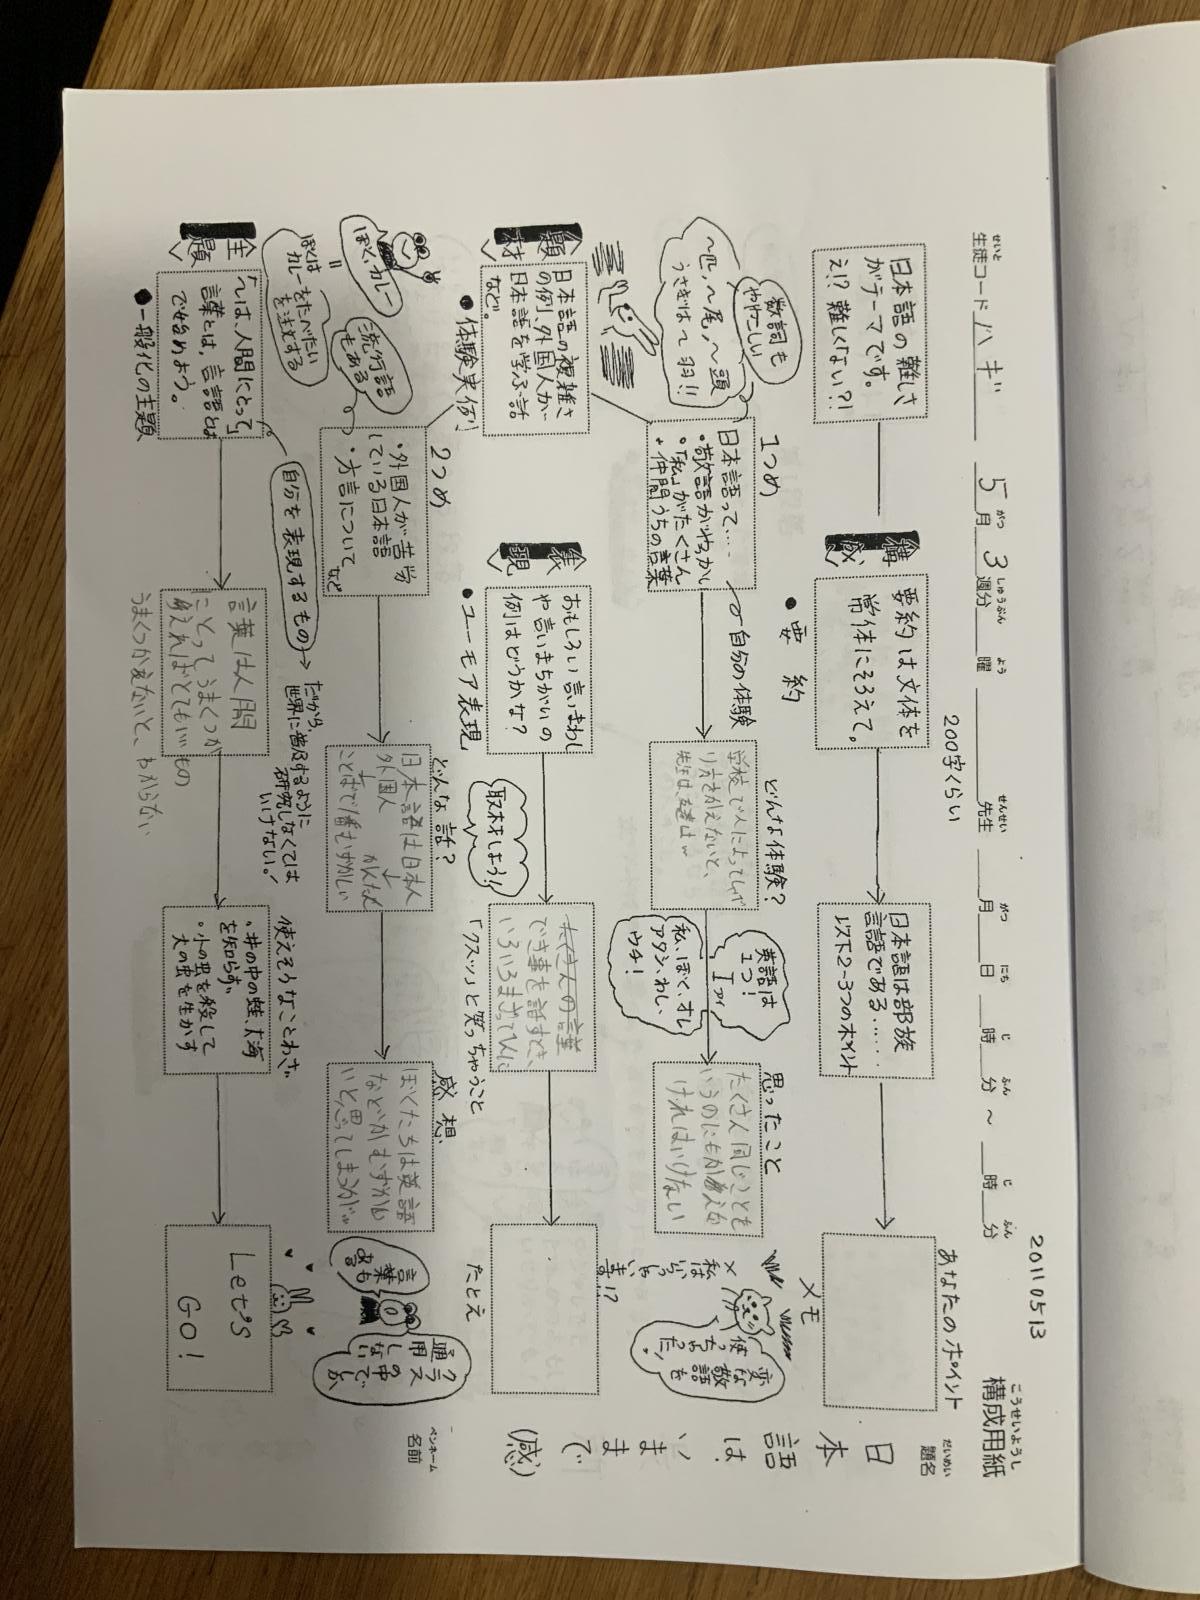 構成用紙
こうせいようし
20110513
せいと
生徒コード ハギ
がつ しゅうぶん よう せんせい がつ にち じ ふん じ ふん
5月3週分 曜 先生 月 日 時 分 ~ 時 分
だいめい
題名
日本語は、いままで(感)
ペンネーム
名前
日本語の難しさ
がテーマです。
え!? 難しくない?!
構成
要約は文体を
常体にそろえて。
●要約
200字くらい
日本語は部族
言語である……
以下2~3つのポイント
あなたのポイント
メモ
数詞も
ややこしい
~匹、~尾、~頭
うさぎは~羽!!
1つめ
日本語って……
・敬語がやっかい
・「私」がたくさん
・仲間うちの言葉
自分の体験
どんな体験?
学校で人によってしゃべ
り方をかえないと、
英語は
1つ!
I アイ
私、ぼく、オレ
アタシ、わし、
ウチ!
思ったこと
たくさん同じことを
いうのにもかえな
ければいけない
変な敬語を
使っちゃった!
題材
日本語の複雑さ
の例、外国人が
日本語を学ぶ話
など。
●体験実例
表現
おもしろい言いまわし
や言いまちがいの
例はどうかな?
●ユーモア表現
取材しよう!
たくさんの言葉
でき事を話すとき、
「クスッ」と笑っちゃうこと
たとえ
ぼく、カレー
=
ぼくは
カレーをたべたい
を注文する
流行語
もある
2つめ
・外国人が苦労
している日本語
・方言について
など
どんな話?
日本語は日本人
かんたん
外国人
ことばで1番むずかしい
感想
ぼくたちは英語
などがむずかし
いと思ってしまうけど
クラス
の中でしか
通用しない
言葉もある
主題
「~は、人間にとって」
言葉とは、言語とは
で始めよう。
●一般化の主題
自分を表現するもの
だから、
世界に普及するように
研究しなくては
いけない!
言葉は人間
にとってうまくつか
えればとてもいいもの
うまくつかえないと、わからない
使えそうなことわざ
・井の中の蛙、大海
を知らず
・小の虫を殺して
大の虫を生かす
Let's
GO!